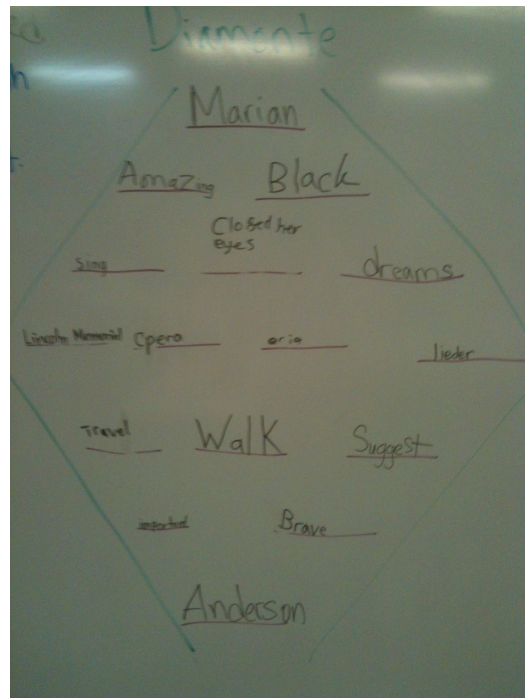 Diamonte
Marian
Amazing Black
Closed her
eyes
sing dreams
Lincoln Memorial Opera aria lieder
Travel Walk Suggest
Brave
Anderson